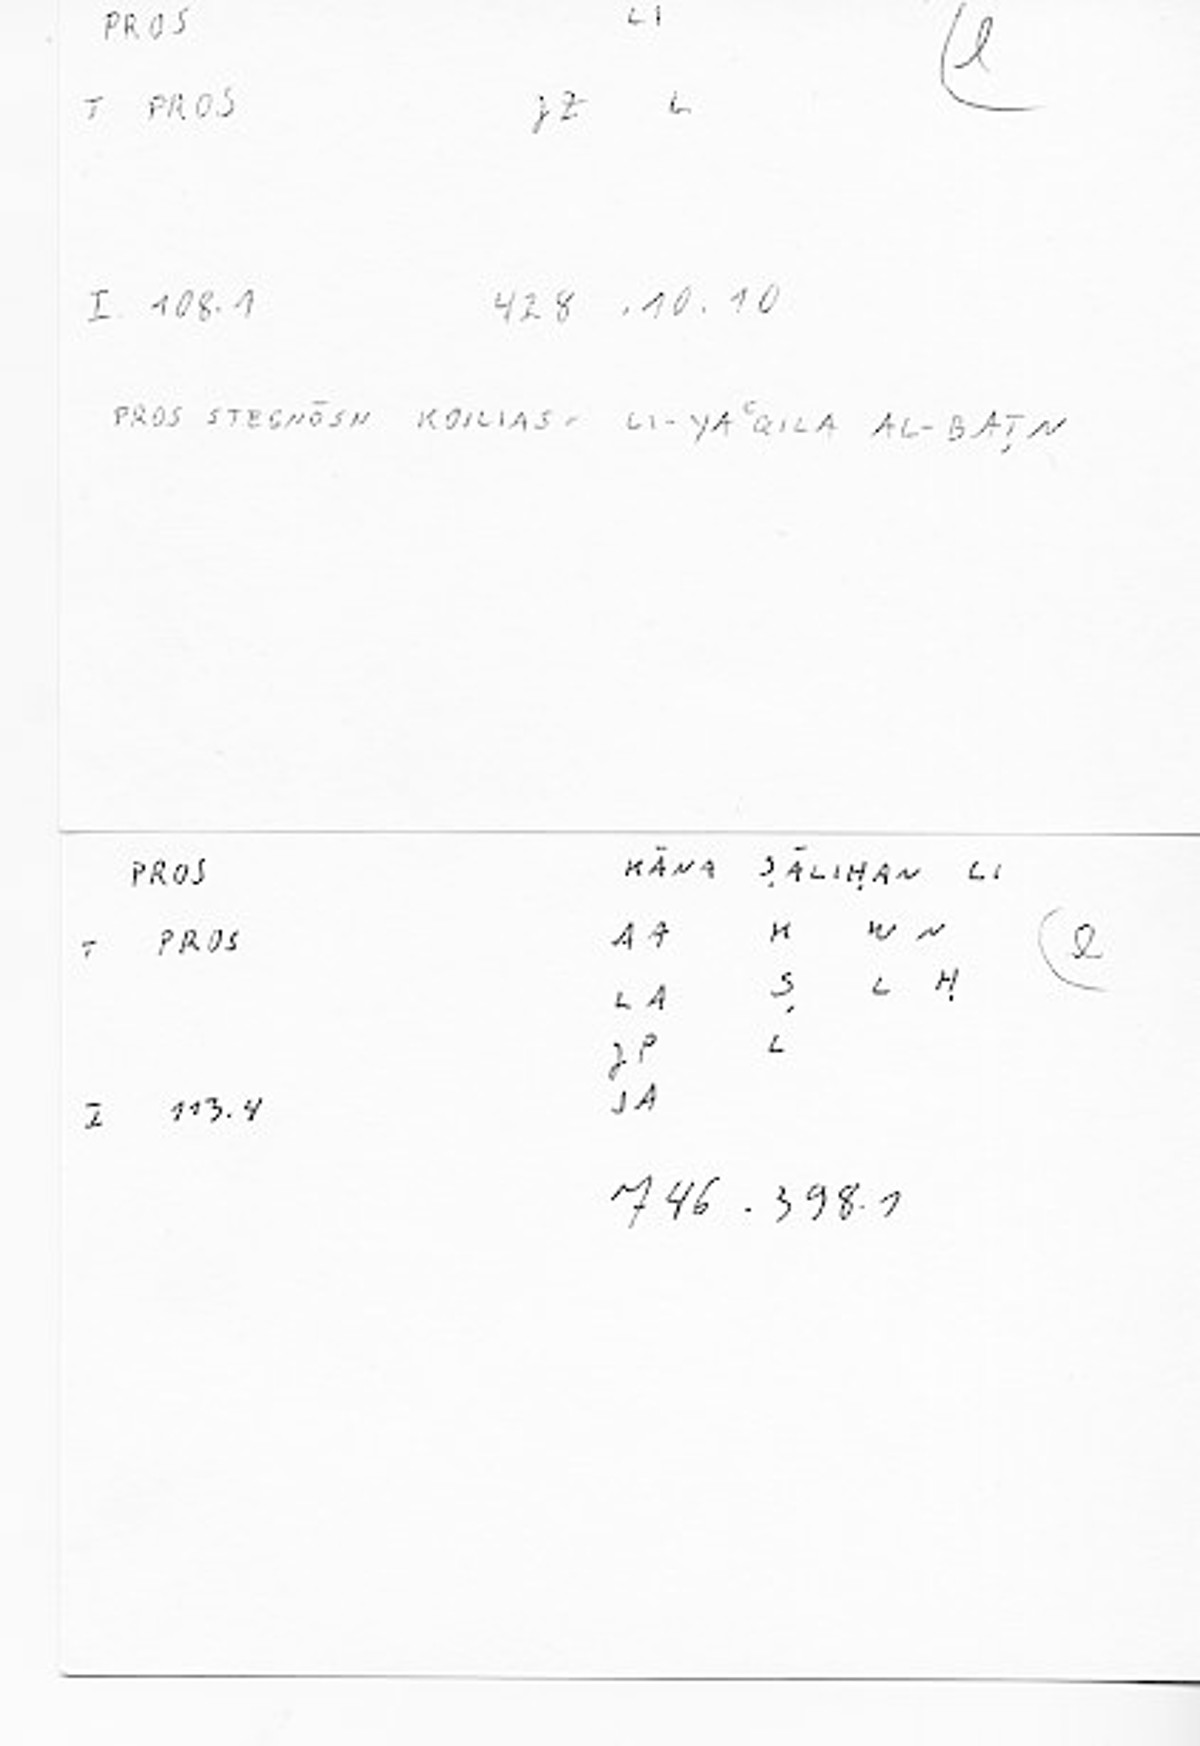 PROS LI l
T PROS jZ L
I 108.1 428 .10.10
PROS STEGNŌSN KOILIAS- LI-YAʿQILA AL-BAṬN
PROS KĀNA ṢĀLIḤAN LI
T PROS AA K W N
LA Ṣ L Ḥ
jP L
I 113.4 JA
746 . 398.1